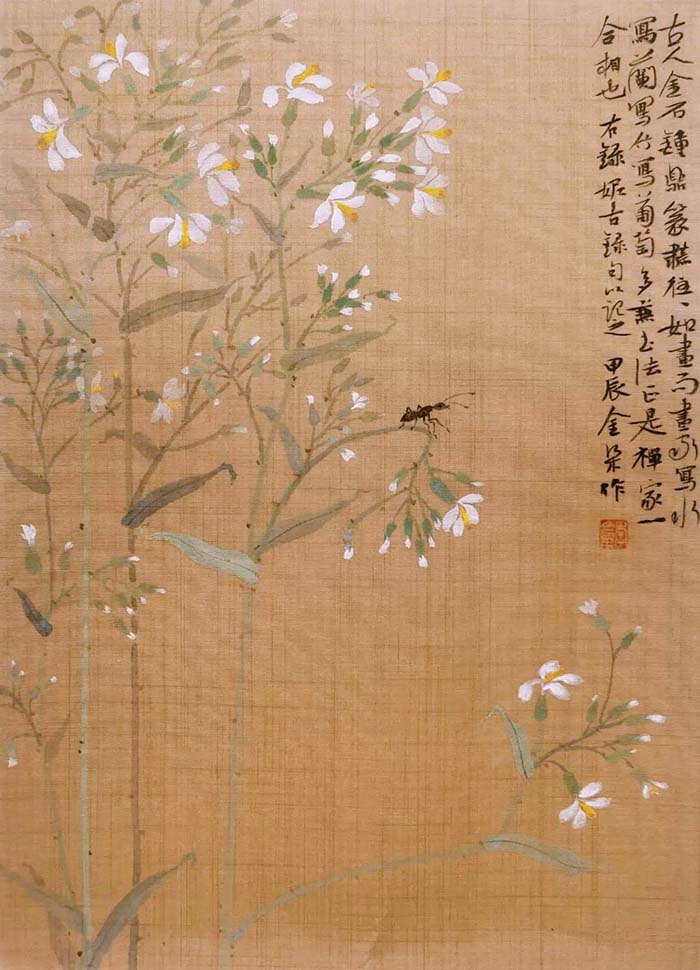 古人金石鐘鼎篆隸往、如畫而畫家寫水
寫蘭寫竹寫葡萄多兼书法正是禪家一
合相也 右録妮古録句以記之 甲辰金作